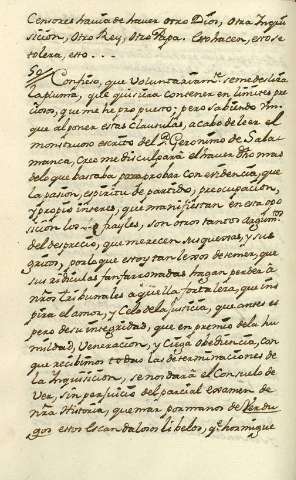 Censores havia de haver otro Dios, otra Inqui
sicion, otro Rey, otro Papa. Esto hacen, esto se
tolera, esto...
59 Confieso, que voluntariam.te se me desliza
la pluma, que quisiera contener en limites pre
cisos, que me he propuesto: pero sabiendo Vm.
que al poner estas clausulas, acabo de leer el
monstruoso escrito del P. Geronimo de Sala
manca, creo me disculpará el haver dho mas
de lo que bastaba para probar con evidencia, que
la pasion, espiritu de partido, preocupacion,
y propio interes, que manifiestan en esta opo
sicion los frayles, son otros tantos argum.tos
del desprecio, que merecen sus quexas, y sus
gritos, por lo que estoy tan lexos de temer, que
sus ridiculas fanfarronadas hagan perder à
nros tribunales aquella fortaleza, que ins
pira el amor, y celo de la justicia, que antes es
pero de su integridad, que en premio de la hu
mildad, veneracion, y ciega obediencia, con
que recibimos todas las determinaciones de
la Inquisicion, se nos dará el Consuelo de
ver, sin perjuicio del parcial examen de
nra Historia, quemar por manos de Verdu
gos estos escandalosos libelos, q.e hormigue